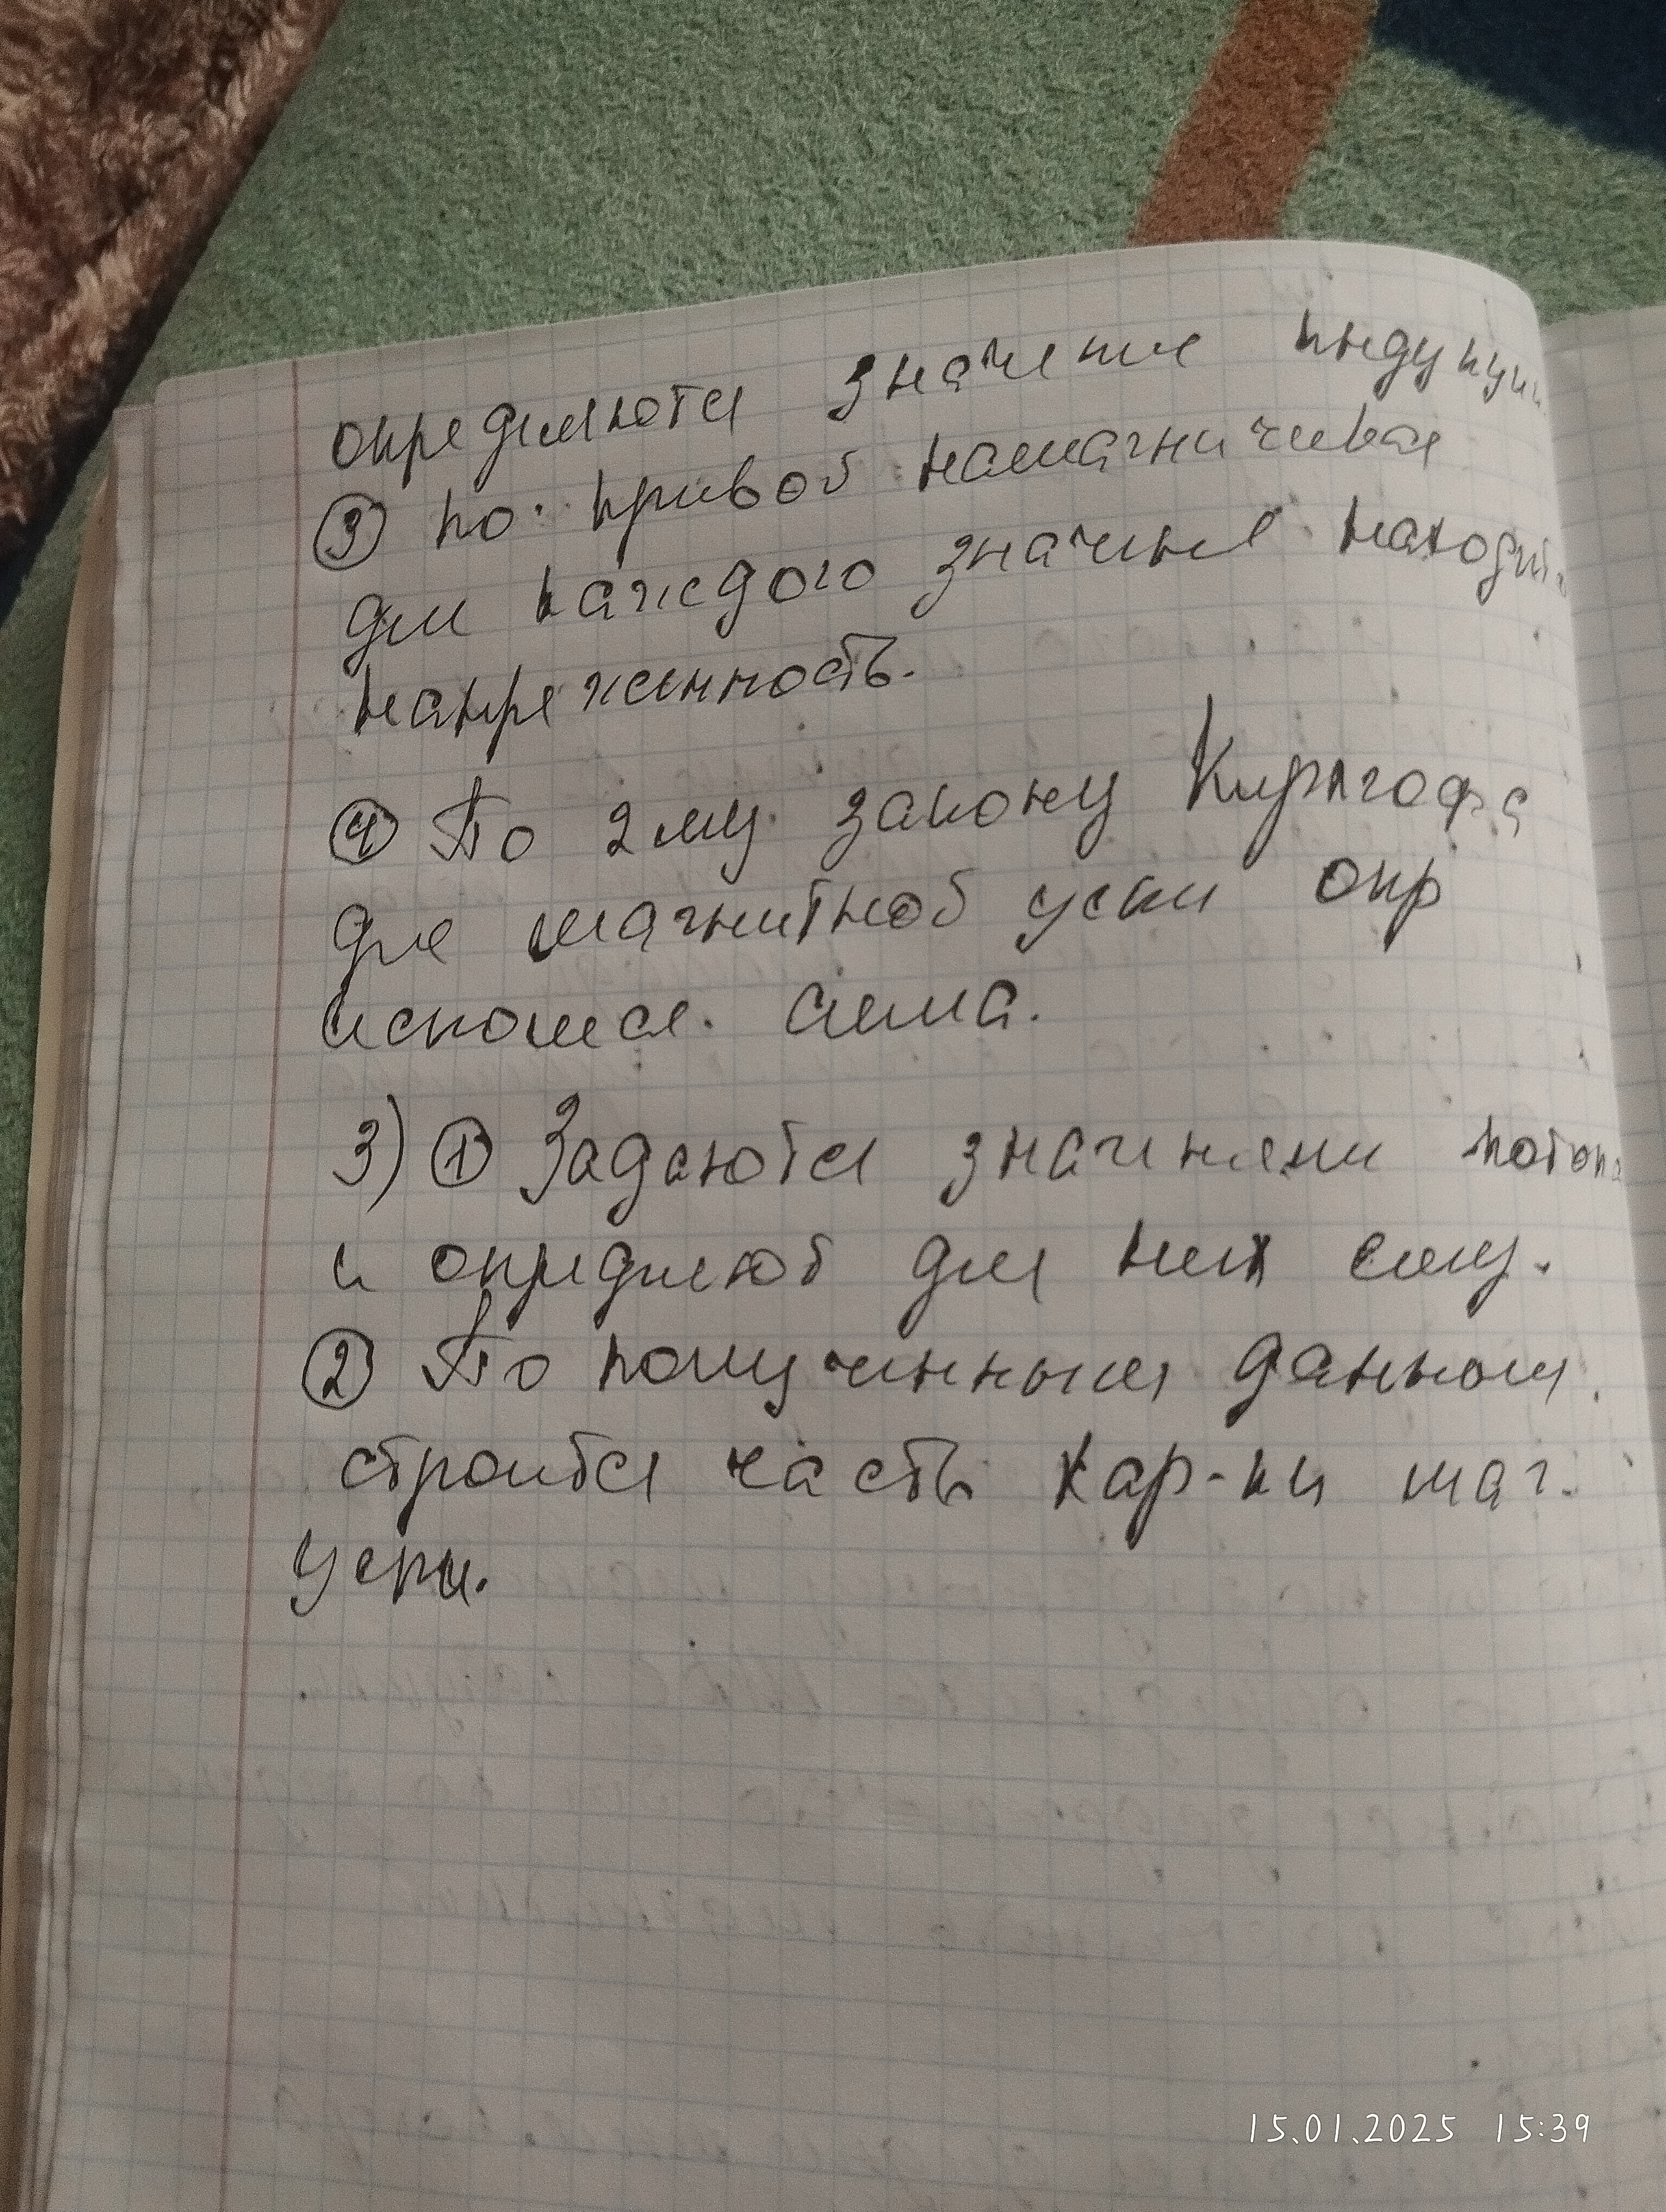 определяются значение индукции
③ по кривой намагничивая
для каждого значения находит
напреженность.
④ По 2му закону Кирхгофа
для магнитной цепи опр
искомая сила.
3) ① Задаются значениями потока
и определяют для них силу.
② По полученным данным
строится часть хар-ки маг.
цепи.
15.01.2025 15:39